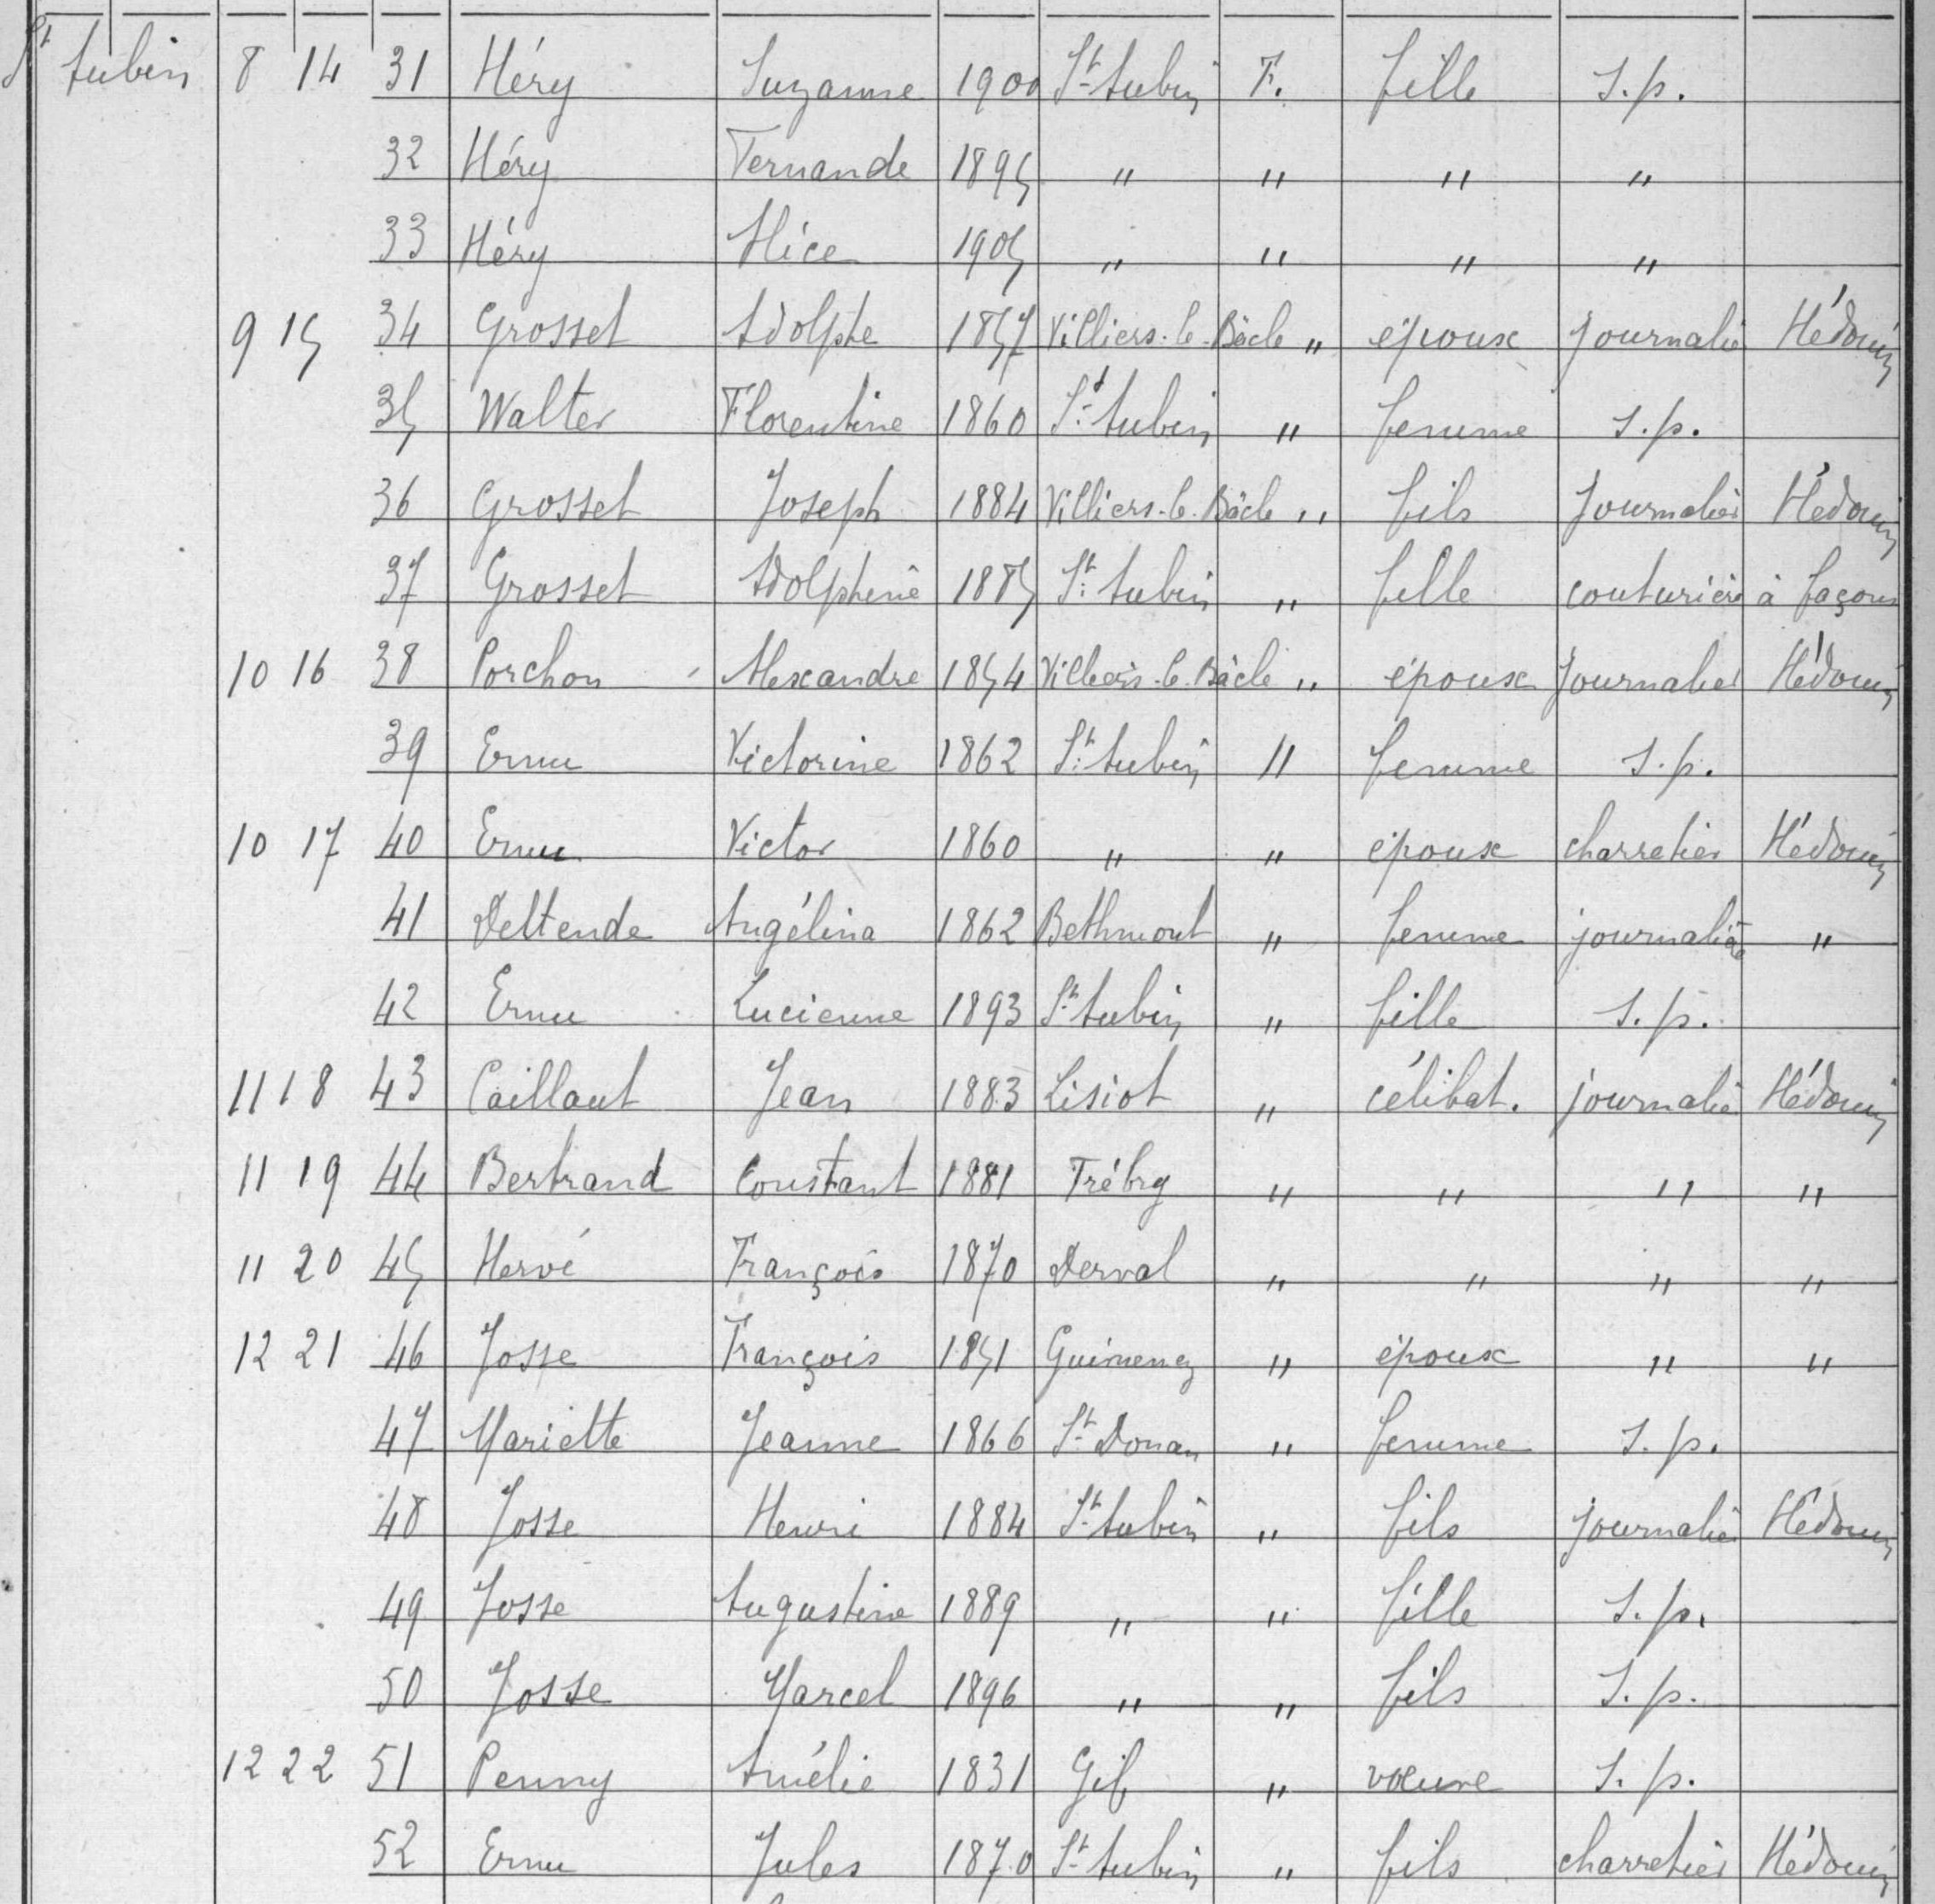 St Aubin 8 14 31 Héry Suzanne 1900 St Aubin F. fille s.p.
32 Héry Fernande 1895 " " " "
33 Héry Alice 1905 " " " "
9 15 34 Grosset Adolphe 1857 Villiers-le-Bâcle " époux journalier Hédouin
35 Walter Florentine 1860 St Aubin " femme s.p.
36 Grosset Joseph 1884 Villiers-le-Bâcle " fils Journalier Hédouin
37 Grosset Adolphine 1885 St Aubin " fille couturière à façon
10 16 38 Porchon Alexandre 1854 Villiers-le-Bâcle " époux Journalier Hédouin
39 Ernu Victorine 1862 St Aubin " femme s.p.
10 17 40 Ernu Victor 1860 " " époux charretier Hédouin
41 Deltende Angélina 1862 Bethmont " femme journalière "
42 Ernu Lucienne 1893 St Aubin " fille s.p.
11 18 43 Caillaut Jean 1883 Lisiot " célibat. journalier Hédouin
11 19 44 Bertrand Constant 1881 Trébry " " " "
11 20 45 Hervé François 1870 Derval " " " "
12 21 46 Josse François 1851 " époux " "
47 Mariette Jeanne 1866 St Donan " femme s.p.
48 Josse Henri 1884 St Aubin " fils journalier Hédouin
49 Josse Augustine 1889 " " fille s.p.
50 Josse Marcel 1896 " " fils s.p.
12 22 51 Penny Amélie 1831 Gif " veuve s.p.
52 Ernu Jules 1870 St Aubin " fils charretier Hédouin